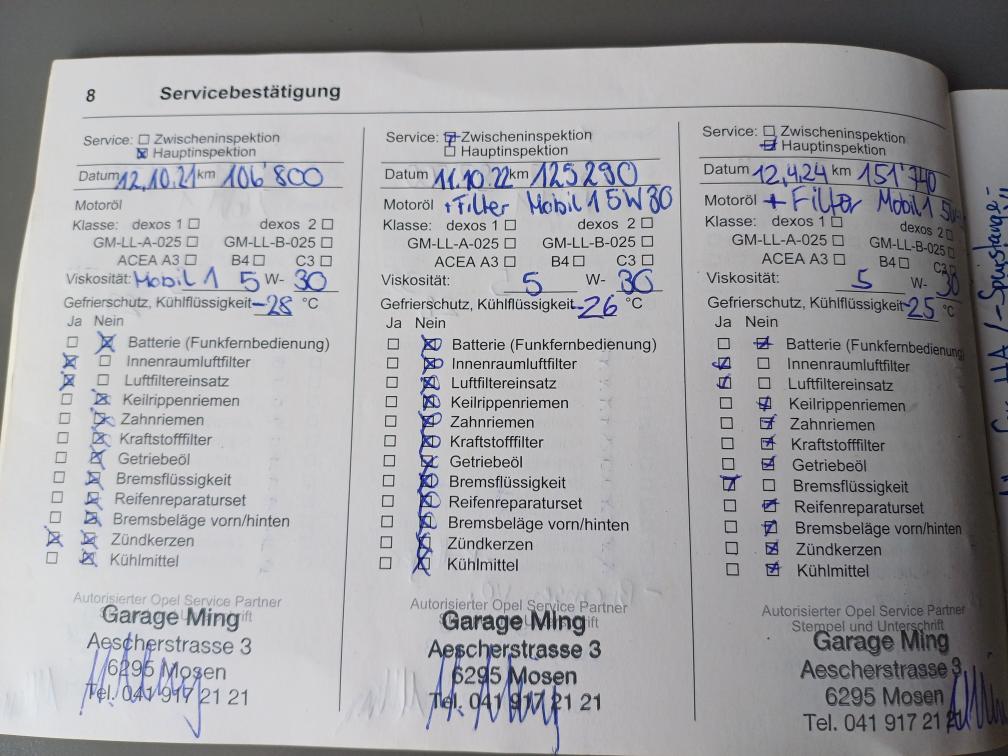 8 Servicebestätigung
Service: ☐ Zwischeninspektion
☒ Hauptinspektion
Datum 12.10.21 km 106'800
Motoröl
Klasse: dexos 1 ☐ dexos 2 ☐
GM-LL-A-025 ☐ GM-LL-B-025 ☐
ACEA A3 ☐ B4 ☐ C3 ☐
Viskosität: Mobil 1 5 W- 30
Gefrierschutz, Kühlflüssigkeit -28 °C
Ja Nein
☐ ☒ Batterie (Funkfernbedienung)
☒ ☐ Innenraumluftfilter
☒ ☐ Luftfiltereinsatz
☐ ☒ Keilrippenriemen
☐ ☒ Zahnriemen
☐ ☒ Kraftstofffilter
☐ ☒ Getriebeöl
☐ ☒ Bremsflüssigkeit
☐ ☒ Reifenreparaturset
☐ ☒ Bremsbeläge vorn/hinten
☒ ☒ Zündkerzen
☐ ☒ Kühlmittel
Autorisierter Opel Service Partner
Garage Ming
Aescherstrasse 3
6295 Mosen
Tel. 041 917 21 21
Service: ☒ Zwischeninspektion
☐ Hauptinspektion
Datum 11.10.22 km 125290
Motoröl + Filter Mobil 1 5W30
Klasse: dexos 1 ☐ dexos 2 ☐
GM-LL-A-025 ☐ GM-LL-B-025 ☐
ACEA A3 ☐ B4 ☐ C3 ☐
Viskosität: 5 W- 30
Gefrierschutz, Kühlflüssigkeit -26 °C
Ja Nein
☐ ☒ Batterie (Funkfernbedienung)
☐ ☒ Innenraumluftfilter
☐ ☒ Luftfiltereinsatz
☐ ☒ Keilrippenriemen
☐ ☒ Zahnriemen
☐ ☒ Kraftstofffilter
☐ ☒ Getriebeöl
☐ ☒ Bremsflüssigkeit
☐ ☒ Reifenreparaturset
☐ ☒ Bremsbeläge vorn/hinten
☐ ☒ Zündkerzen
☐ ☒ Kühlmittel
Autorisierter Opel Service Partner
Garage Ming
Aescherstrasse 3
6295 Mosen
Tel. 041 917 21 21
Service: ☐ Zwischeninspektion
☒ Hauptinspektion
Datum 12.4.24 km 151'740
Motoröl + Filter Mobil 1
Klasse: dexos 1 ☐ dexos 2 ☐
GM-LL-A-025 ☐ GM-LL-B-025 ☐
ACEA A3 ☐ B4 ☐ C3
Viskosität: 5 W- 30
Gefrierschutz, Kühlflüssigkeit -25 °C
Ja Nein
☐ ☒ Batterie (Funkfernbedienung)
☒ ☐ Innenraumluftfilter
☒ ☐ Luftfiltereinsatz
☐ ☒ Keilrippenriemen
☐ ☒ Zahnriemen
☐ ☒ Kraftstofffilter
☐ ☒ Getriebeöl
☒ ☐ Bremsflüssigkeit
☐ ☒ Reifenreparaturset
☐ ☒ Bremsbeläge vorn/hinten
☐ ☒ Zündkerzen
☐ ☒ Kühlmittel
Autorisierter Opel Service Partner
Stempel und Unterschrift
Garage Ming
Aescherstrasse 3
6295 Mosen
Tel. 041 917 21 21